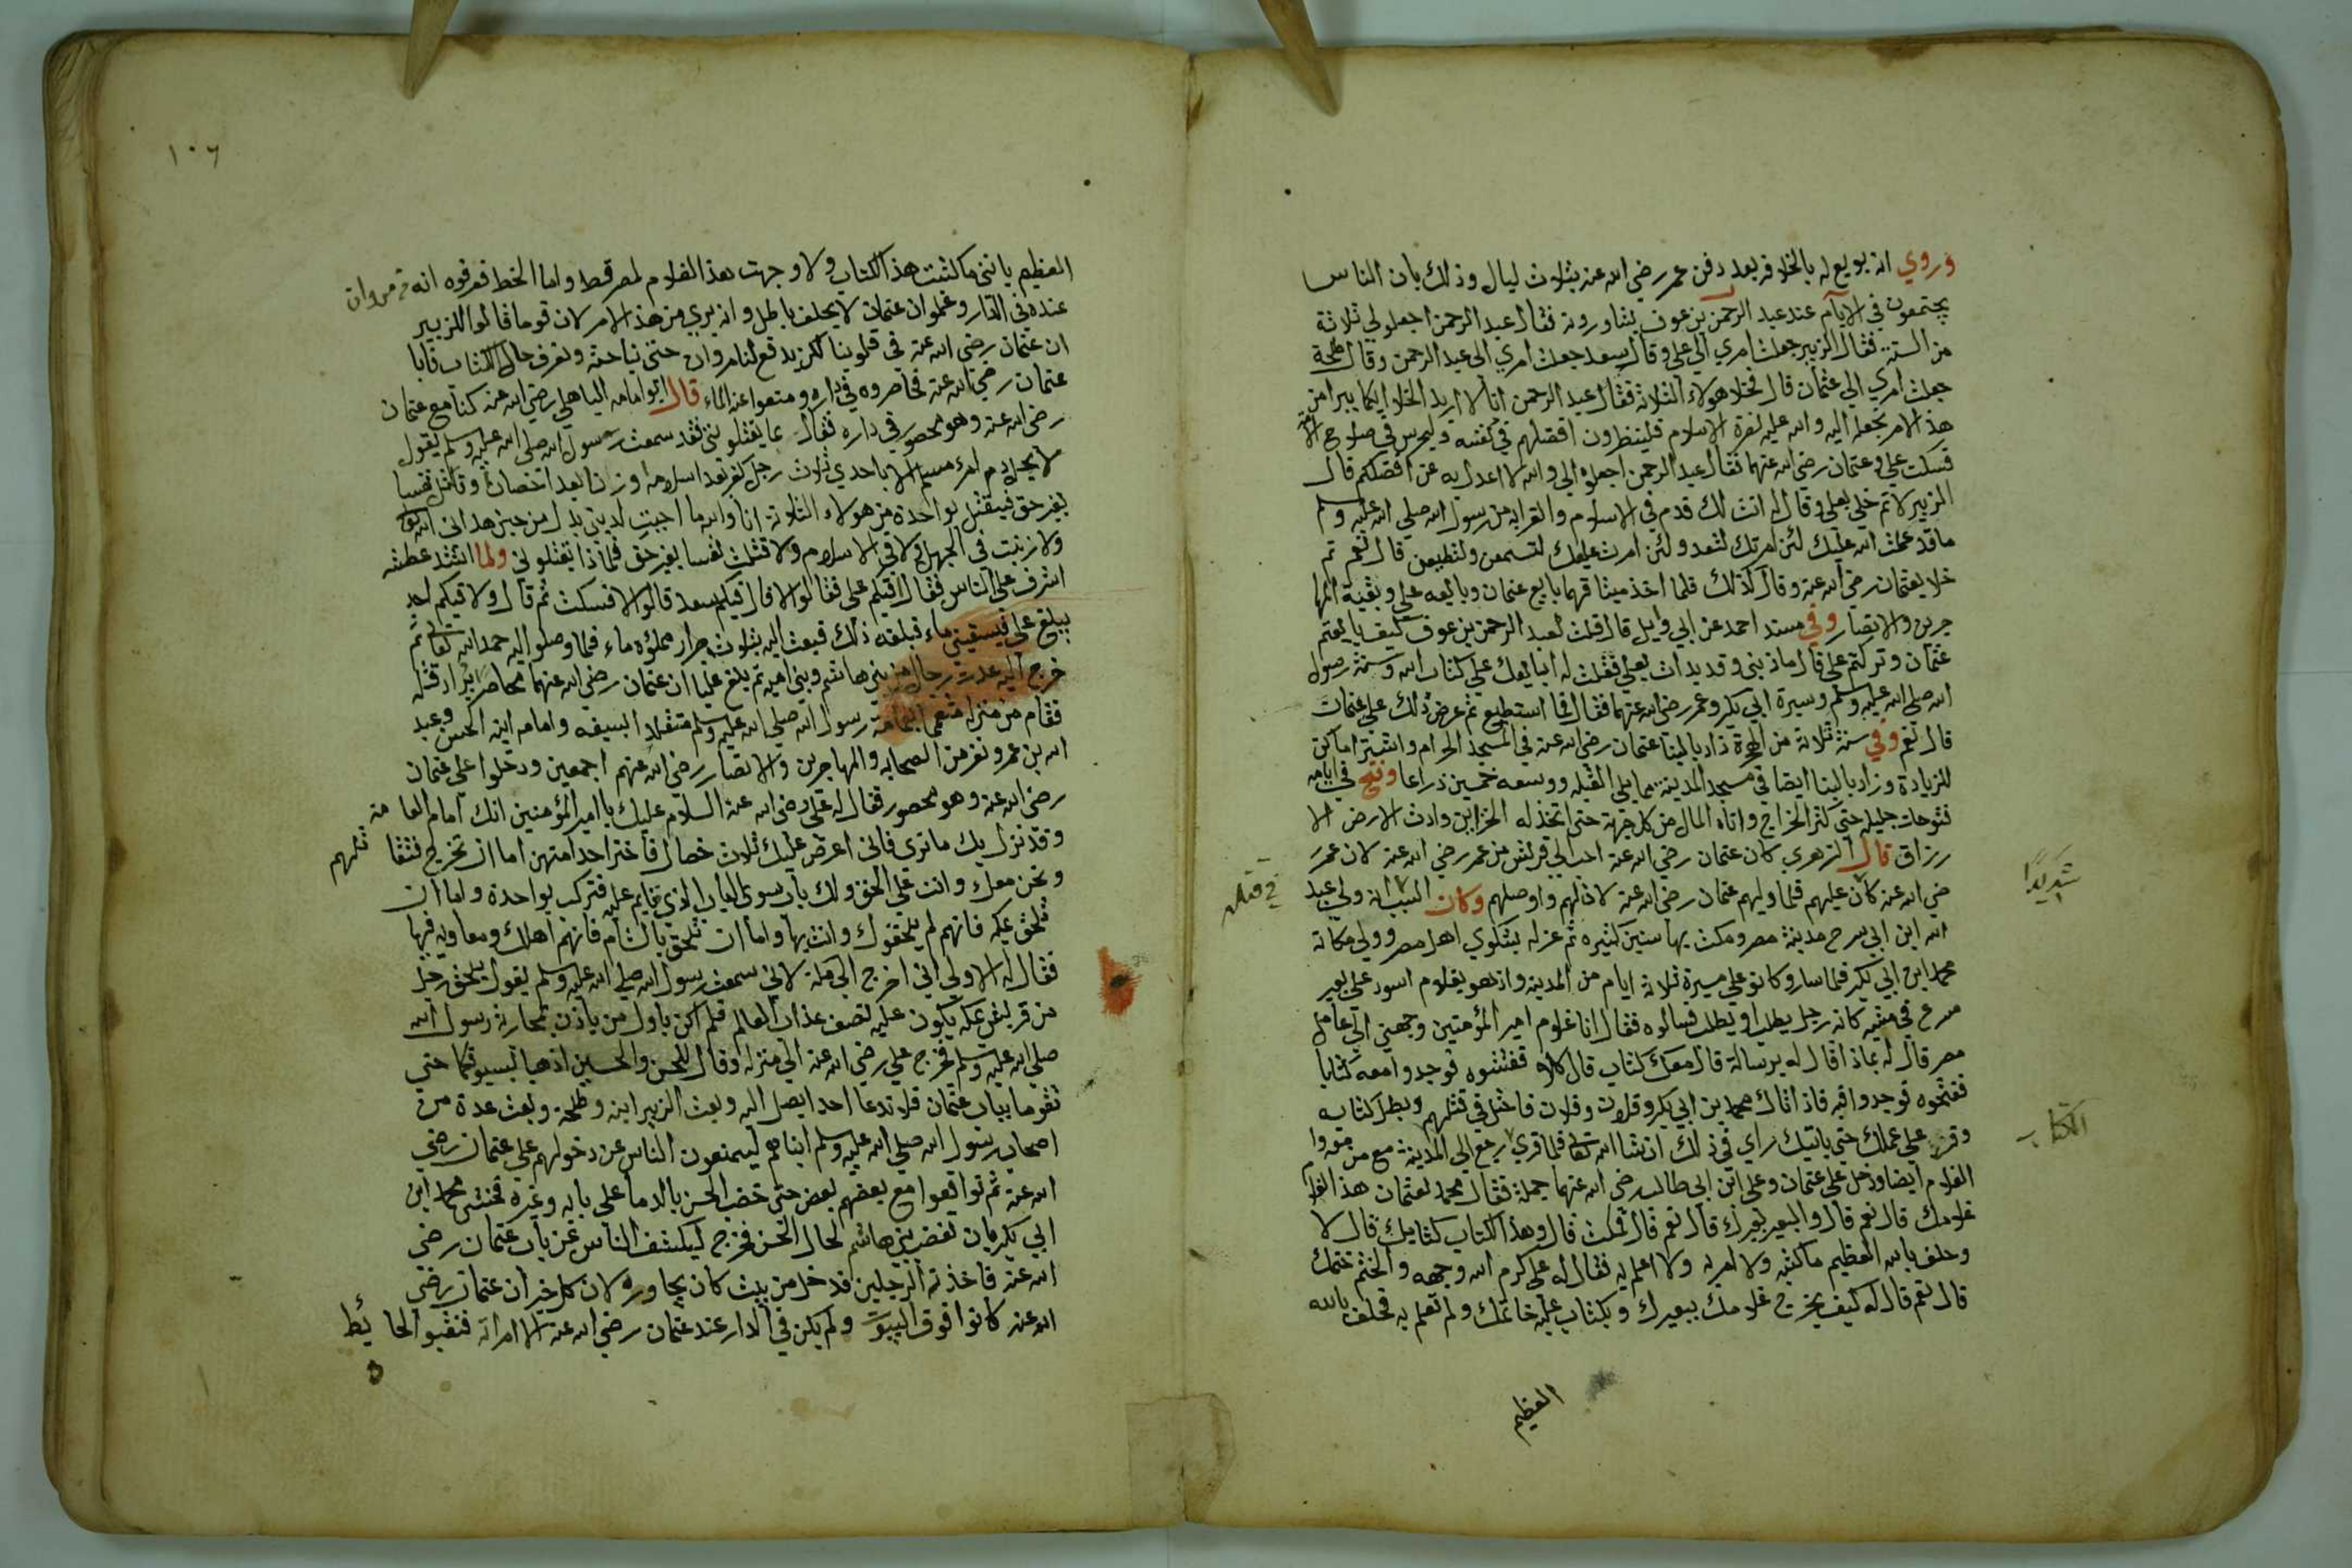 وروي انه بويع له بالخلافة بعد دفن عمر رضي الله عنه بثلاث ليال وذلك بان الناس
يجتمعون في الايام عند عبد الرحمن بن عوف يشاورونه فقال عبد الرحمن اجعلو لي ثلاثة
من الستة فقال الزبير جعلت امري الي علي وقال سعد جعلت امري الي عبد الرحمن وقال طلحة
جعلت امري الي عثمان قال فخلا هولاء الثلاثة فقال عبد الرحمن انا لا اريد الخلا ايكما يبرا من
هذا الامر نجعله اليه والله عليه لفرة الاسلام فلينظرون افضلهم في نفسه وليحرس في صلاح
فسكت علي وعثمان رضي الله عنهما فقال عبد الرحمن اجعلوه الي والله لا اعدل به عن افضلكم قال
الزبير لا ثم خلي بعلي وقال له انت لك قدم في الاسلام والقرابه من رسول الله صلي الله عليه وسلم
ما قد علمت الله عليك لئن امرتك لتعد ولئن امرت عليك لتسمعن ولتطيعن قال نعم ثم
خلا بعثمان رضي الله عنه وقال كذلك فلما اخذ ميثاقهما بايع عثمان وبايعه علي وبقية المها
جرين والانصار وفي مسند احمد عن ابي وايل قال قلت لعبد الرحمن بن عوف كيف بايعتم
عثمان وتركتم علي قال ما ذنبي وقد بدات بعلي فقلت له ابايعك علي كتاب الله وسنة رسول
الله صلي الله عليه وسلم وسيرة ابي بكر وعمر رضي الله عنهما فقال فما استطيع ثم عرض ذلك علي عثمان
قال نعم وفي سنة ثلاثة من الهجرة زاد بالبنا عثمان رضي الله عنه في المسجد الحرام واشترا اماكن
للزيادة وزاد بالبنا ايضا في مسجد المدينة مما يلي القبله ووسعه خمسين ذراعا وفتح في ايامه
فتوحات جليله حتي كثر الخراج واتاه المال من كل جهة حتي اتخذ له الخزاين وادت الارض الا
رزاق قال الزهري كان عثمان رضي الله عنه احب الي قريش من عمر رضي الله عنه لان عمر
ضي الله عنه كان عليهم فلما وليهم عثمان رضي الله عنه لان لهم واوصلهم وكان السبب انه ولي عبد
شديدا
في قتله
الله ابن ابي سرح مدينة مصر ومكث بها سنين كثيره ثم عزله بشكوي اهل مصر وولي مكانه
محمد ابن ابي بكر فلما سار وكانو علي مسيرة ثلاثة ايام من المدينه واذ هو بغلام اسود علي بعير
مسرع في مشيه كانه رجل يطلب او يطلب فسالوه فقال انا غلوم امير المؤمنين وجهني الي عامل
مصر قال له بماذا قال له برسالة قال معك كتاب قال كلا ففتشوه فوجدوا معه كتابا
ففتحوه فوجدوا فيه فاذا اتاك محمد بن ابي بكر وفلان وفلان فاحتل في قتلهم وبطل كتابه
الكتاب
وقر علي عملك حتي ياتيك راي في ذلك انشا الله تعالي فلما قري رجع الي المدينة مع من معه واء
الغلام ايضا ودخل علي عثمان وعلي ابن ابي طالب رضي الله عنهما جملة فقال محمد لعثمان هذا الغلام
غلامك قال نعم قال والبعير بعيرك قال نعم فسكت قال وهذا الكتاب كتابك قال لا
وحلف بالله العظيم ما كتبه ولا امر به ولا اعلم به فقال له علي كرم الله وجهه والختم ختمك
قال نعم قال له كيف يخرج غلامك ببعيرك وبكتاب عليه خاتمك ولم تعلم به فحلف بالله
العظيم
١٠٦
العظيم بانني ما كتبت هذا الكتاب ولا وجهت هذا الغلام لمصر قط واما الخط فعرفوه انه من مروان
عنده في الدار وعلموا ان عثمان لا يحلف باطل وانه بري من هذا الامر لان قوما قالوا للزبير
ان عثمان رضي الله عنه في قلوبنا لكن يدفع لنا مروان حتي نباحثه ونعرف حال الكتاب فابا
عثمان رضي الله عنه فحاصروه في داره ومنعوا عنه الماء قال ابو امامه الباهلي رضي الله عنه كنا مع عثمان
رضي الله عنه وهو محصور في داره فقال بما يقتلوني فقد سمعت رسول الله صلي الله عليه وسلم يقول
لا يحل دم امرء مسلم الا باحدي ثلاث رجل كفر بعد اسلامه او زنا بعد احصان او قاتل نفسا
بغير حق فيقتل بواحدة من هولاء الثلاثة انا والله ما احببت لديني بدلا من حين هداني الله تعالي
ولا زنيت في الجهلة ولا في الاسلام ولا قتلت نفسا بغير حق فماذا تقتلوني ولما اشتد عطشه
اشرف علي الناس فقال افيكم علي فقالوا لا قال فيكم سعد قالوا لا فسكت ثم قال ولا فيكم احد
يبلغ علي فيسقيني ماء فبلغه ذلك فبعث اليه بثلاث جرار مملؤه ماء فلما وصلوا اليه حمد الله تعالي ثم
خرج اليه عدت رجال من بني هاشم وبني اميه ثم بلغ عليا ان عثمان رضي الله عنهما محاصر يراد قتله
فقام من منزله متعمما بعمامة رسول الله صلي الله عليه وسلم متقلدا السيفه وامامه ابنه الحسن وعبد
الله بن عمر ونفر من الصحابه والمهاجرين والانصار رضي الله عنهم اجمعين ودخلوا علي عثمان
رضي الله عنه وهو محصور فقال له علي رضي الله عنه السلام عليك يا امير المؤمنين انك امام العامه
وقد نزل بك ما تري فاني اعرض عليك ثلاث خصال فاختر احدا منهن اما ان تخرج فتقا تلهم
ونحن معك وانت علي الحق ولك باب سوي الباب الذي قايم عليه فتركب بواحدة واما ان
تلحق بمكه فانهم لم يلحقوك وانت بها واما ان تلحق بالشام فانهم اهلك ومعاويه فيها
فقال له الاولي اني اخرج الي مكة لاني سمعت رسول الله صلي الله عليه وسلم يقول يلحق رجل
من قريش بمكه يكون عليه نصف عذاب العالم فلم اكن باول من ياذن بمحاربة رسول الله
صلي الله عليه وسلم فخرج علي رضي الله عنه الي منزله وقال للحسن والحسين اذهبا بسيوفكما حتي
تقوما بباب عثمان فلا تدعا احدا يصل اليه وبعث الزبير ابنه وطلحة وبعث عدة من
اصحاب رسول الله صلي الله عليه وسلم ابناهم ليمنعون الناس عن دخولهم علي عثمان رضي
الله عنه ثم تواقعوا مع بعضهم بعض حتي خضب الحسن بالدما علي بابه وغيره فخشي محمد ابن
ابي بكر بان تغضب بني هاشم لحال الحسن فخرج ليكشف الناس عن باب عثمان رضي
الله عنه فاخذته الرجلين فدخل من بيت كان بجاوره لان كل خبر ان عثمان رضي
الله عنه كانوا فوق البيوت ولم يكن في الدار عند عثمان رضي الله عنه الا امراته فنقبوا الحائط